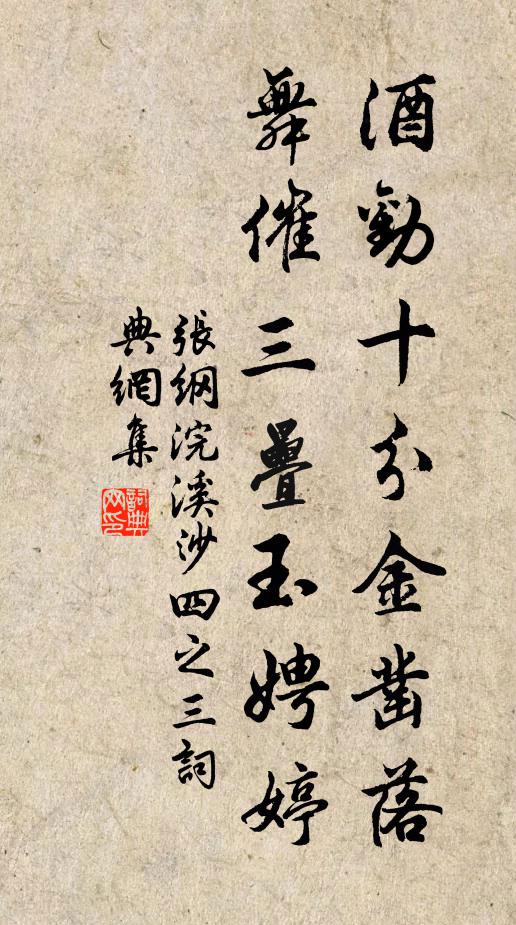 酒勸十分金鑿落
舞催三疊玉娉婷
張綱浣溪沙四之三詞
典網集
詞典
网印